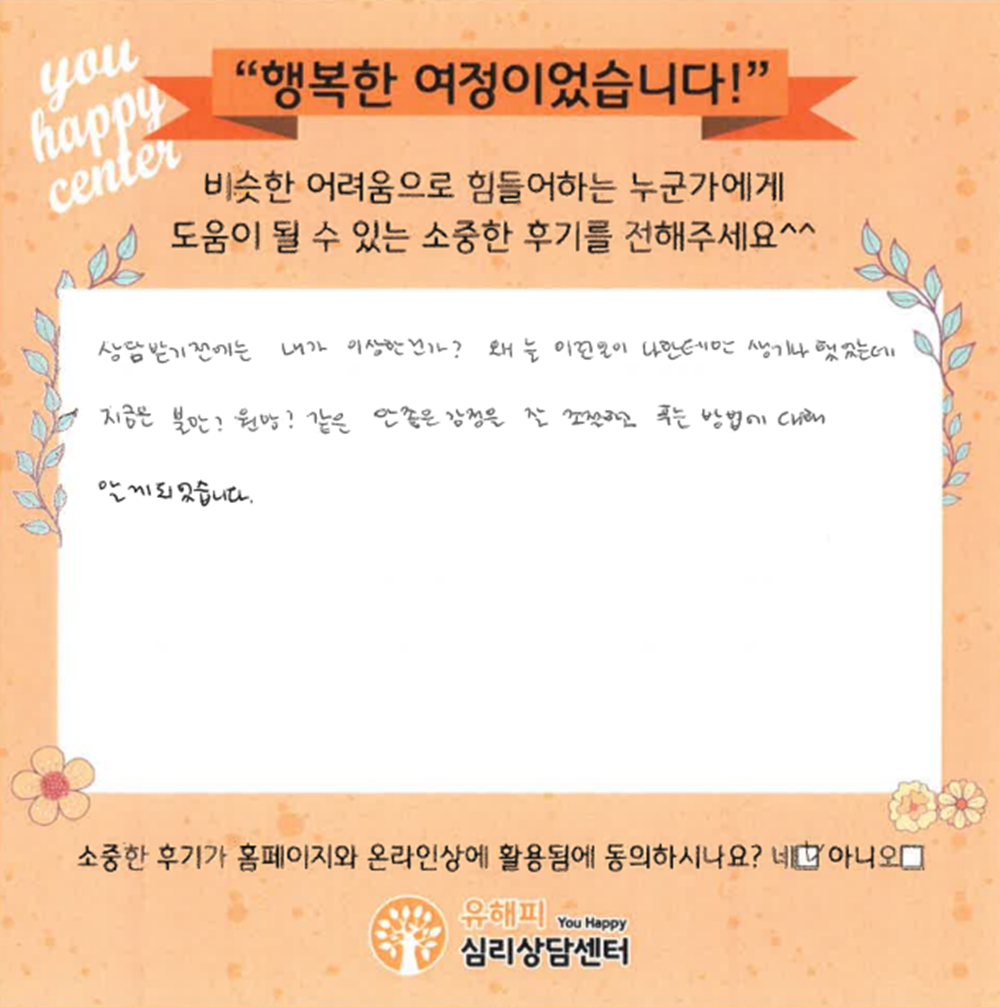 you
happy
center
“행복한 여정이었습니다!”
비슷한 어려움으로 힘들어하는 누군가에게
도움이 될 수 있는 소중한 후기를 전해주세요^^
상담받기전에는 내가 이상한건가? 왜 늘 이런일이 나한테만 생기나 했었는데
지금은 불만? 원망? 같은 안좋은감정을 잘 조절하고 푸는 방법에 대해
알게되었습니다.
소중한 후기가 홈페이지와 온라인상에 활용됨에 동의하시나요? 네 아니오
유해피 You Happy
심리상담센터